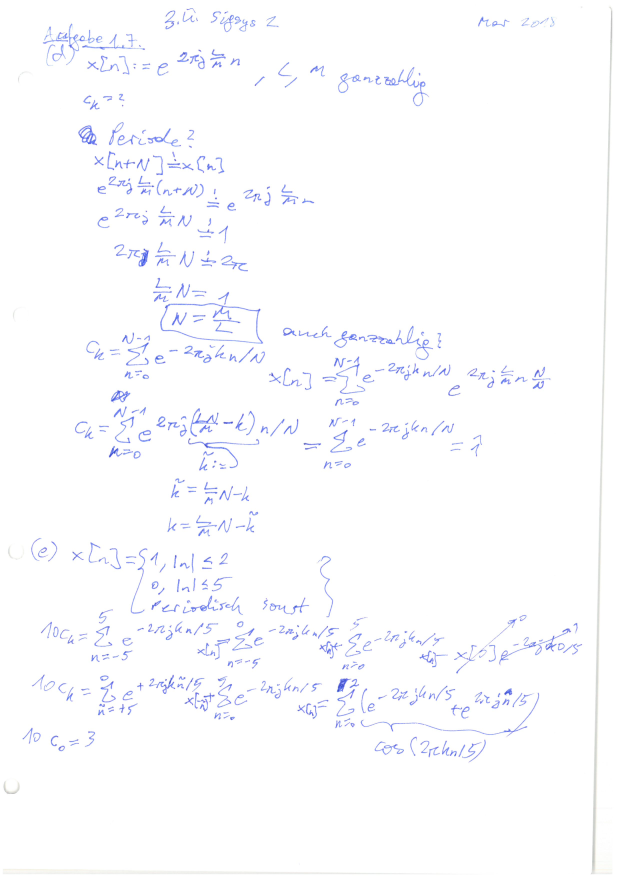 3. Ü. Sigsys 2 Mar 2013
Aufgabe 1.7.
(d) x[n] := e^{2πj L/M n} , L, M ganzzahlig
c_k = ?
Periode?
x[n+N] =! x[n]
e^{2πj L/M (n+N)} =! e^{2πj L/M n}
e^{2πj L/M N} =! 1
2π L/M N =! 2π
L/M N = 1
N = M/L auch ganzzahlig?
c_k = Σ_{n=0}^{N-1} e^{-2πjkn/N} x[n] = Σ_{n=0}^{N-1} e^{-2πjkn/N} e^{2πj L/M n N/N}
c_k = Σ_{n=0}^{N-1} e^{2πj(LN/M - k) n/N} = Σ_{n=0}^{N-1} e^{-2πjkn/N} = 1
k̃ :=
k̃ = L/M N - k
k = L/M N - k̃
(e) x[n] = { 1, |n| ≤ 2
0, |n| ≤ 5
periodisch sonst }
10 c_k = Σ_{n=-5}^{5} e^{-2πjkn/5} x[n] = Σ_{n=-5}^{0} e^{-2πjkn/5} x[n] + Σ_{n=0}^{5} e^{-2πjkn/5} x[n] - x[0] e^{-2πjk0/5}
10 c_k = Σ_{ñ=+5}^{0} e^{+2πjkñ/5} x[ñ] + Σ_{n=0}^{5} e^{-2πjkn/5} x[n] = Σ_{n=0}^{2} (e^{-2πjkn/5} + e^{2πjn/5})
cos(2πkn/5)
10 c_0 = 3